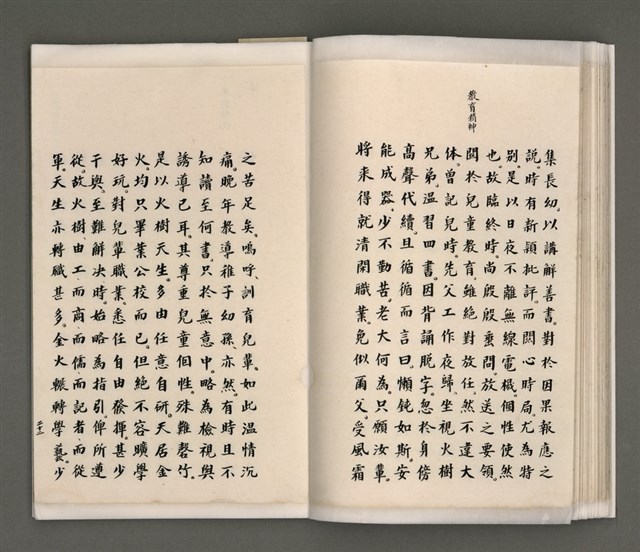 教育精神
集長幼以講解善書。對於因果報應之
說。時有新穎批評。而關心時局尤為特
別。是以日夜不離無線電機。個性使然
也。故臨終時。尚殷殷垂問放送之要領。
關於兒童教育。雖絕對放任。然不違大
体。曾記兒時。先父工作夜歸。坐視火樹
兄弟溫習四書。因背誦脫字。忽於身傍
高聲代續。且循循而言曰。懶鈍如斯。安
能成器。少不勤苦。老大何為。只願汝輩。
將來得就清閑職業。免似爾父。受風霜
之苦足矣。嗚呼。訓育兒輩。如此溫情沉
痛。晚年教導稚子幼孫。亦然。有時且不
知讀至何書。只於無意中。略為檢視與
誘導已耳。其尊重兒童個性。殊難罄竹。
是以火樹天生。多由任意自研。天居金
火。均只畢業公校而已。但絕不容曠學
好玩。對兒輩職業。悉任自由發揮。甚少
干與。至難解決時。始略為指引。俾所遵
從。故火樹由工。而商。而儒。而記者。而從
軍。天生亦轉職甚多。金火輾轉學藝。少
二十二